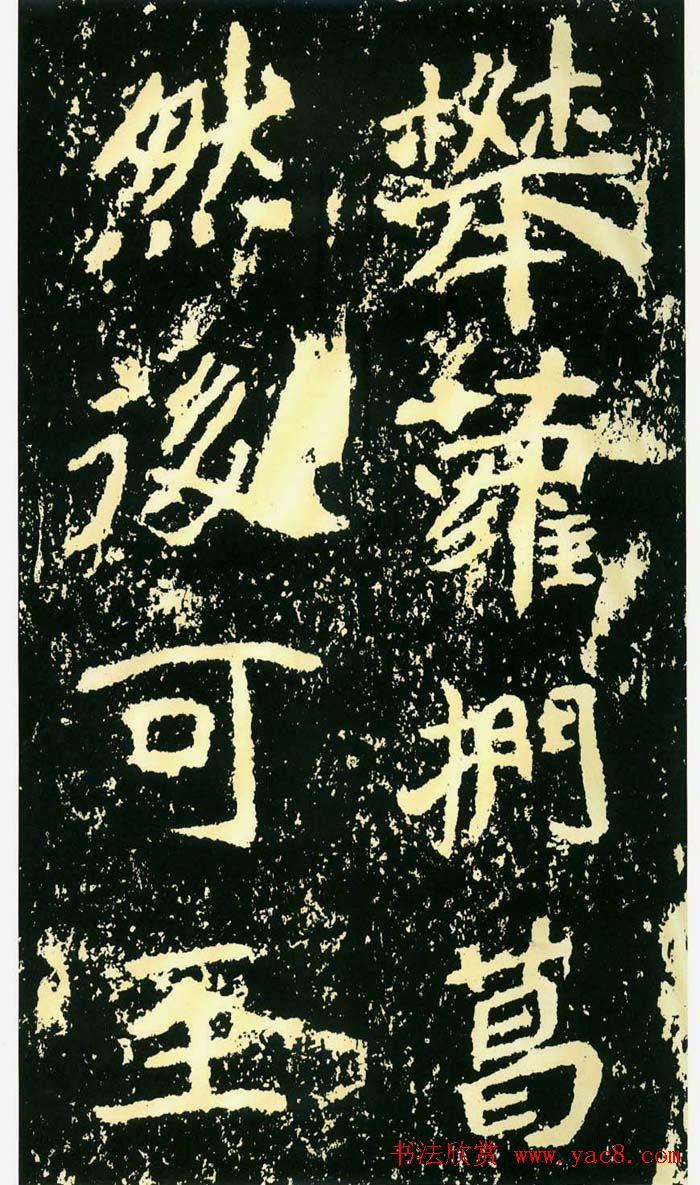 攀蘿捫葛
然後可至
书法欣赏 www.yac8.com